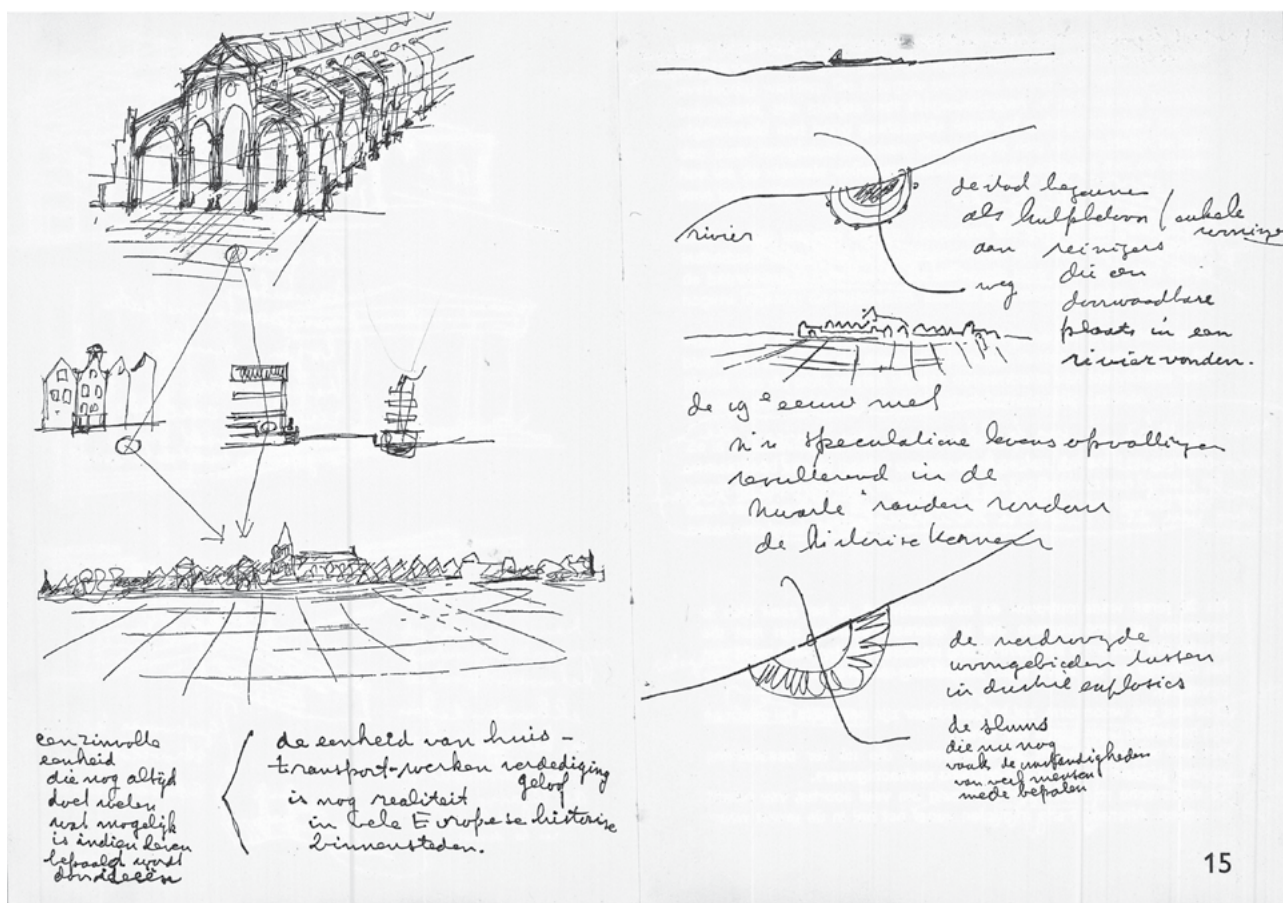 een zinvolle
eenheid
die nog altijd
doet weten
wat mogelijk
is indien leven
bepaald wordt
door ideeën
de eenheid van huis –
transport-werken verdediging
geloof
is nog realiteit
in vele Europese historise
binnensteden.
rivier
weg
de stad begon
als hulpbetoon (enkele
woningen
aan reizigers
die een
doorwaadbare
plaats in een
rivier vonden.
de 19e eeuw met
z'n speculatieve levensopvattingen
resulterend in de
zwarte randen rondom
de historise kernen
de verdroogde
woongebieden tussen
industrie explosies
de slums
die nu nog
vaak de omstandigheden
van veel mensen
mede bepalen
15